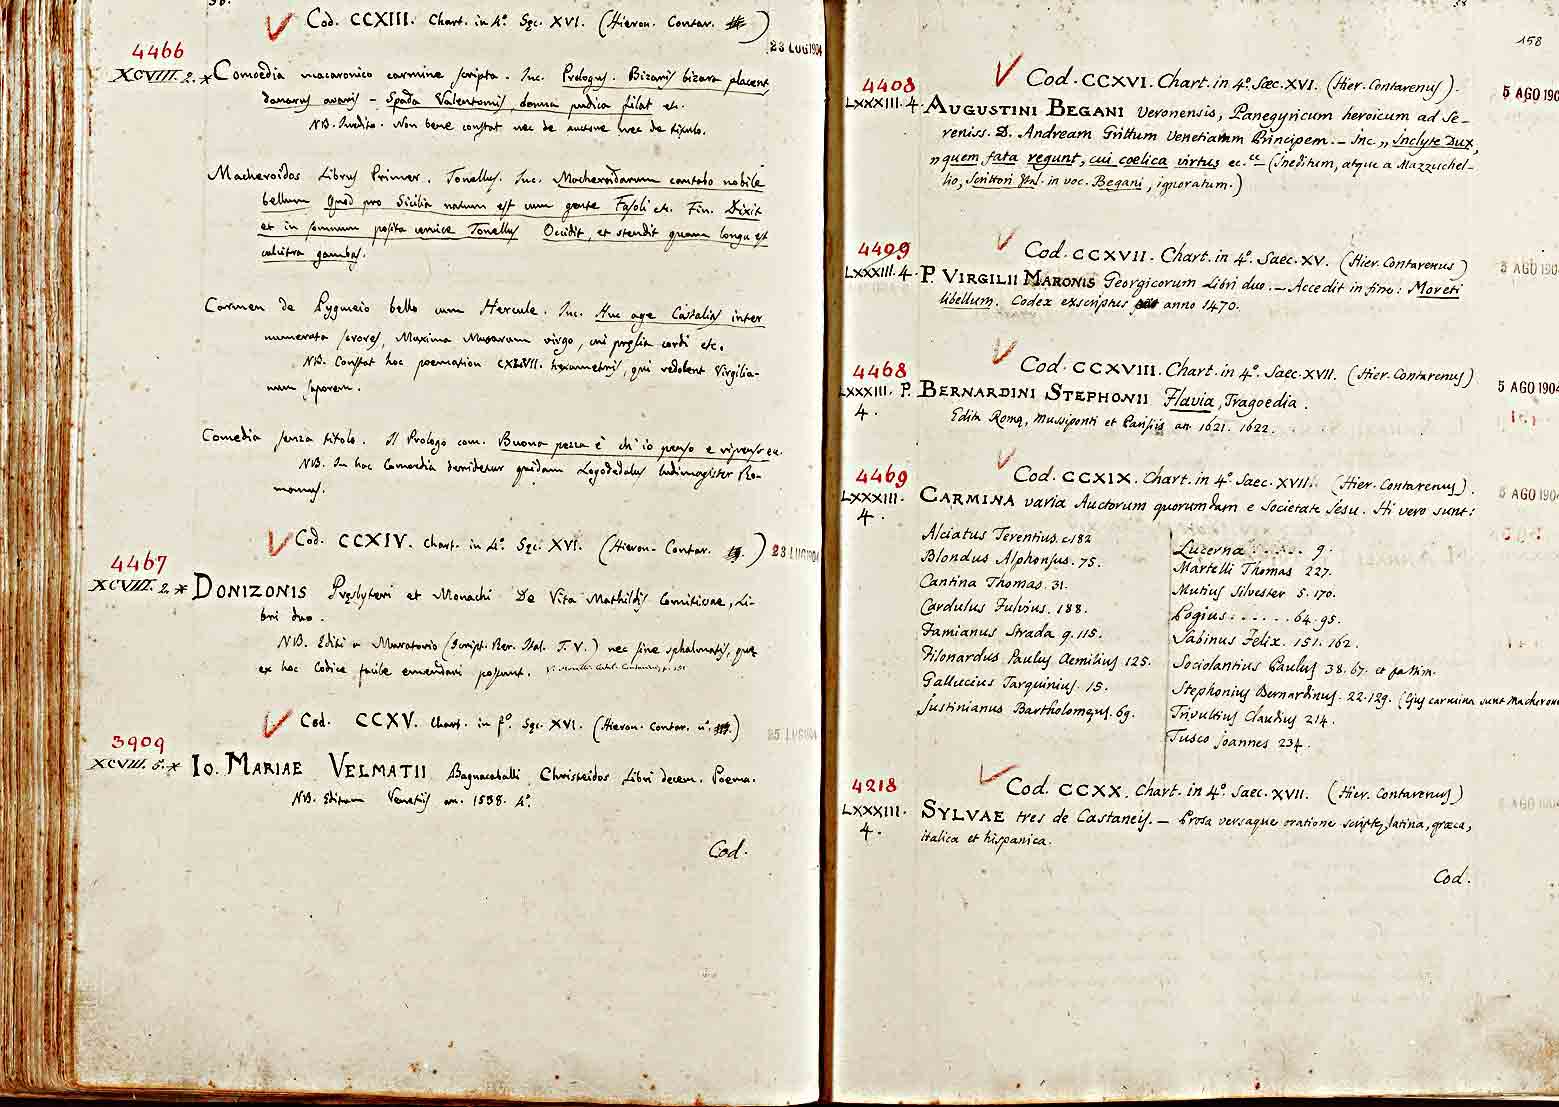 Cod. CCXIII. Chart. in 4º. Sęc. XVI. (Hieron. Contar. )
23 LUG 1904
4466
XCVIII. 2. *
Comoedia macaronico carmine scripta. Inc. Prologus. Bizaris bizara placent
danarus avaris – Spada Valentomis, donna pudica filat etc.
NB. Inedita. Non bene constat nec de auctore nec de titulo.
Macheroidos Librus Primer. Tonellus. Inc. Macheroidarum cantabo nobile
bellum Quod pro Sicilia natum est cum gente Fasoli etc. Fin. Dixit
et in somnum posita cervice Tonellus Occidit, et stendit quam longa est
calcitra gambas.
Carmen de Pygmeio bello cum Hercule. Inc. Huc age Castalias inter
numerata sorores, Maxima Musarum virgo, cui pręlia cordi etc.
NB. Constat hoc poemation CXLVII. hexametris, qui redolent Virgilia-
num saporem.
Comedia senza titolo. Il Prologo com. Buona pezza è ch'io penso e ripenso ec.
NB. In hoc Comoedia deridetur quidam Logodedalus ludimagister Ro-
manus.
Cod. CCXIV. Chart. in 4º. Sęc. XVI. (Hieron. Contar. )
23 LUG 1904
4467
XCVIII. 2. *
DONIZONIS Pręsbyteri et Monachi De Vita Mathildis Comitissae, Li-
bri duo.
NB. Editi a Muratorio (Script. Rer. Ital. T. V.) nec sine sphalmatis, quę
ex hoc Codice facile emendari possunt.
Cod. CCXV. Chart. in fº. Sęc. XVI. (Hieron. Contar. nº. )
25 LUG 1904
3909
XCVIII. 5. *
IO. MARIAE VELMATII Bagnacaballi Christeidos Libri decem. Poema.
NB. Editum Venetiis an. 1538. 4º.
Cod.
158
Cod. CCXVI. Chart. in 4º. Sæc. XVI. (Hier. Contarenus).
5 AGO 190
4408
LXXXIII. 4.
AUGUSTINI BEGANI veronensis, Panegyricum heroicum ad Se-
reniss. D. Andream Grittum Venetiarum Principem. – Inc „ Inclyte Dux,
„ quem fata regunt, cui coelica virtus ec. (Ineditum, atque a Mazzuchel-
lio, Scrittori Ital. in voc. Begani, ignoratum.)
Cod. CCXVII. Chart. in 4º. Saec. XV. (Hier. Contarenus)
5 AGO 190
4409
LXXXIII. 4.
P. VIRGILII MARONIS Georgicorum Libri duo. – Accedit in fine: Moreti
libellum. Codex exscriptus anno 1470.
Cod. CCXVIII. Chart. in 4º. Saec. XVII. (Hier. Contarenus)
5 AGO 1904
4468
LXXXIII. P.
4.
BERNARDINI STEPHONII Flavia, Tragoedia.
Edita Romę, Mussiponti et Parisiis an. 1621. 1622.
Cod. CCXIX. Chart. in 4º. Saec. XVII. (Hier. Contarenus).
5 AGO 1904
4469
LXXXIII.
4.
CARMINA varia Auctorum quorumdam e Societate Jesu. Hi vero sunt:
Alciatus Terentius. c. 182
Blondus Alphonsus. 75.
Cantina Thomas. 31.
Cardulus Fulvius. 188.
Famianus Strada 9. 115.
Filonardus Paulus Aemilius 125.
Gallucius Tarquinius. 15.
Justinianus Bartholomęus. 69.
Luzerna . . . . . 9.
Martelli Thomas 227.
Mutius Silvester 5. 170.
Pogius . . . . . . 64. 95.
Sabinus Felix. 151. 162.
Sociolantius Paulus 38. 67. et passim.
Stephonius Bernardinus. 22. 129. (Ejus carmina sunt Macheron
Trivultius Claudius 214.
Tusco Joannes 234.
Cod. CCXX. Chart. in 4º. Saec. XVII. (Hier. Contarenus)
6 AGO 190
4218
LXXXIII.
4.
SYLVAE tres de Castaneis. – Prosa versaque oratione scriptę, latina, græca,
italica et hispanica.
Cod.